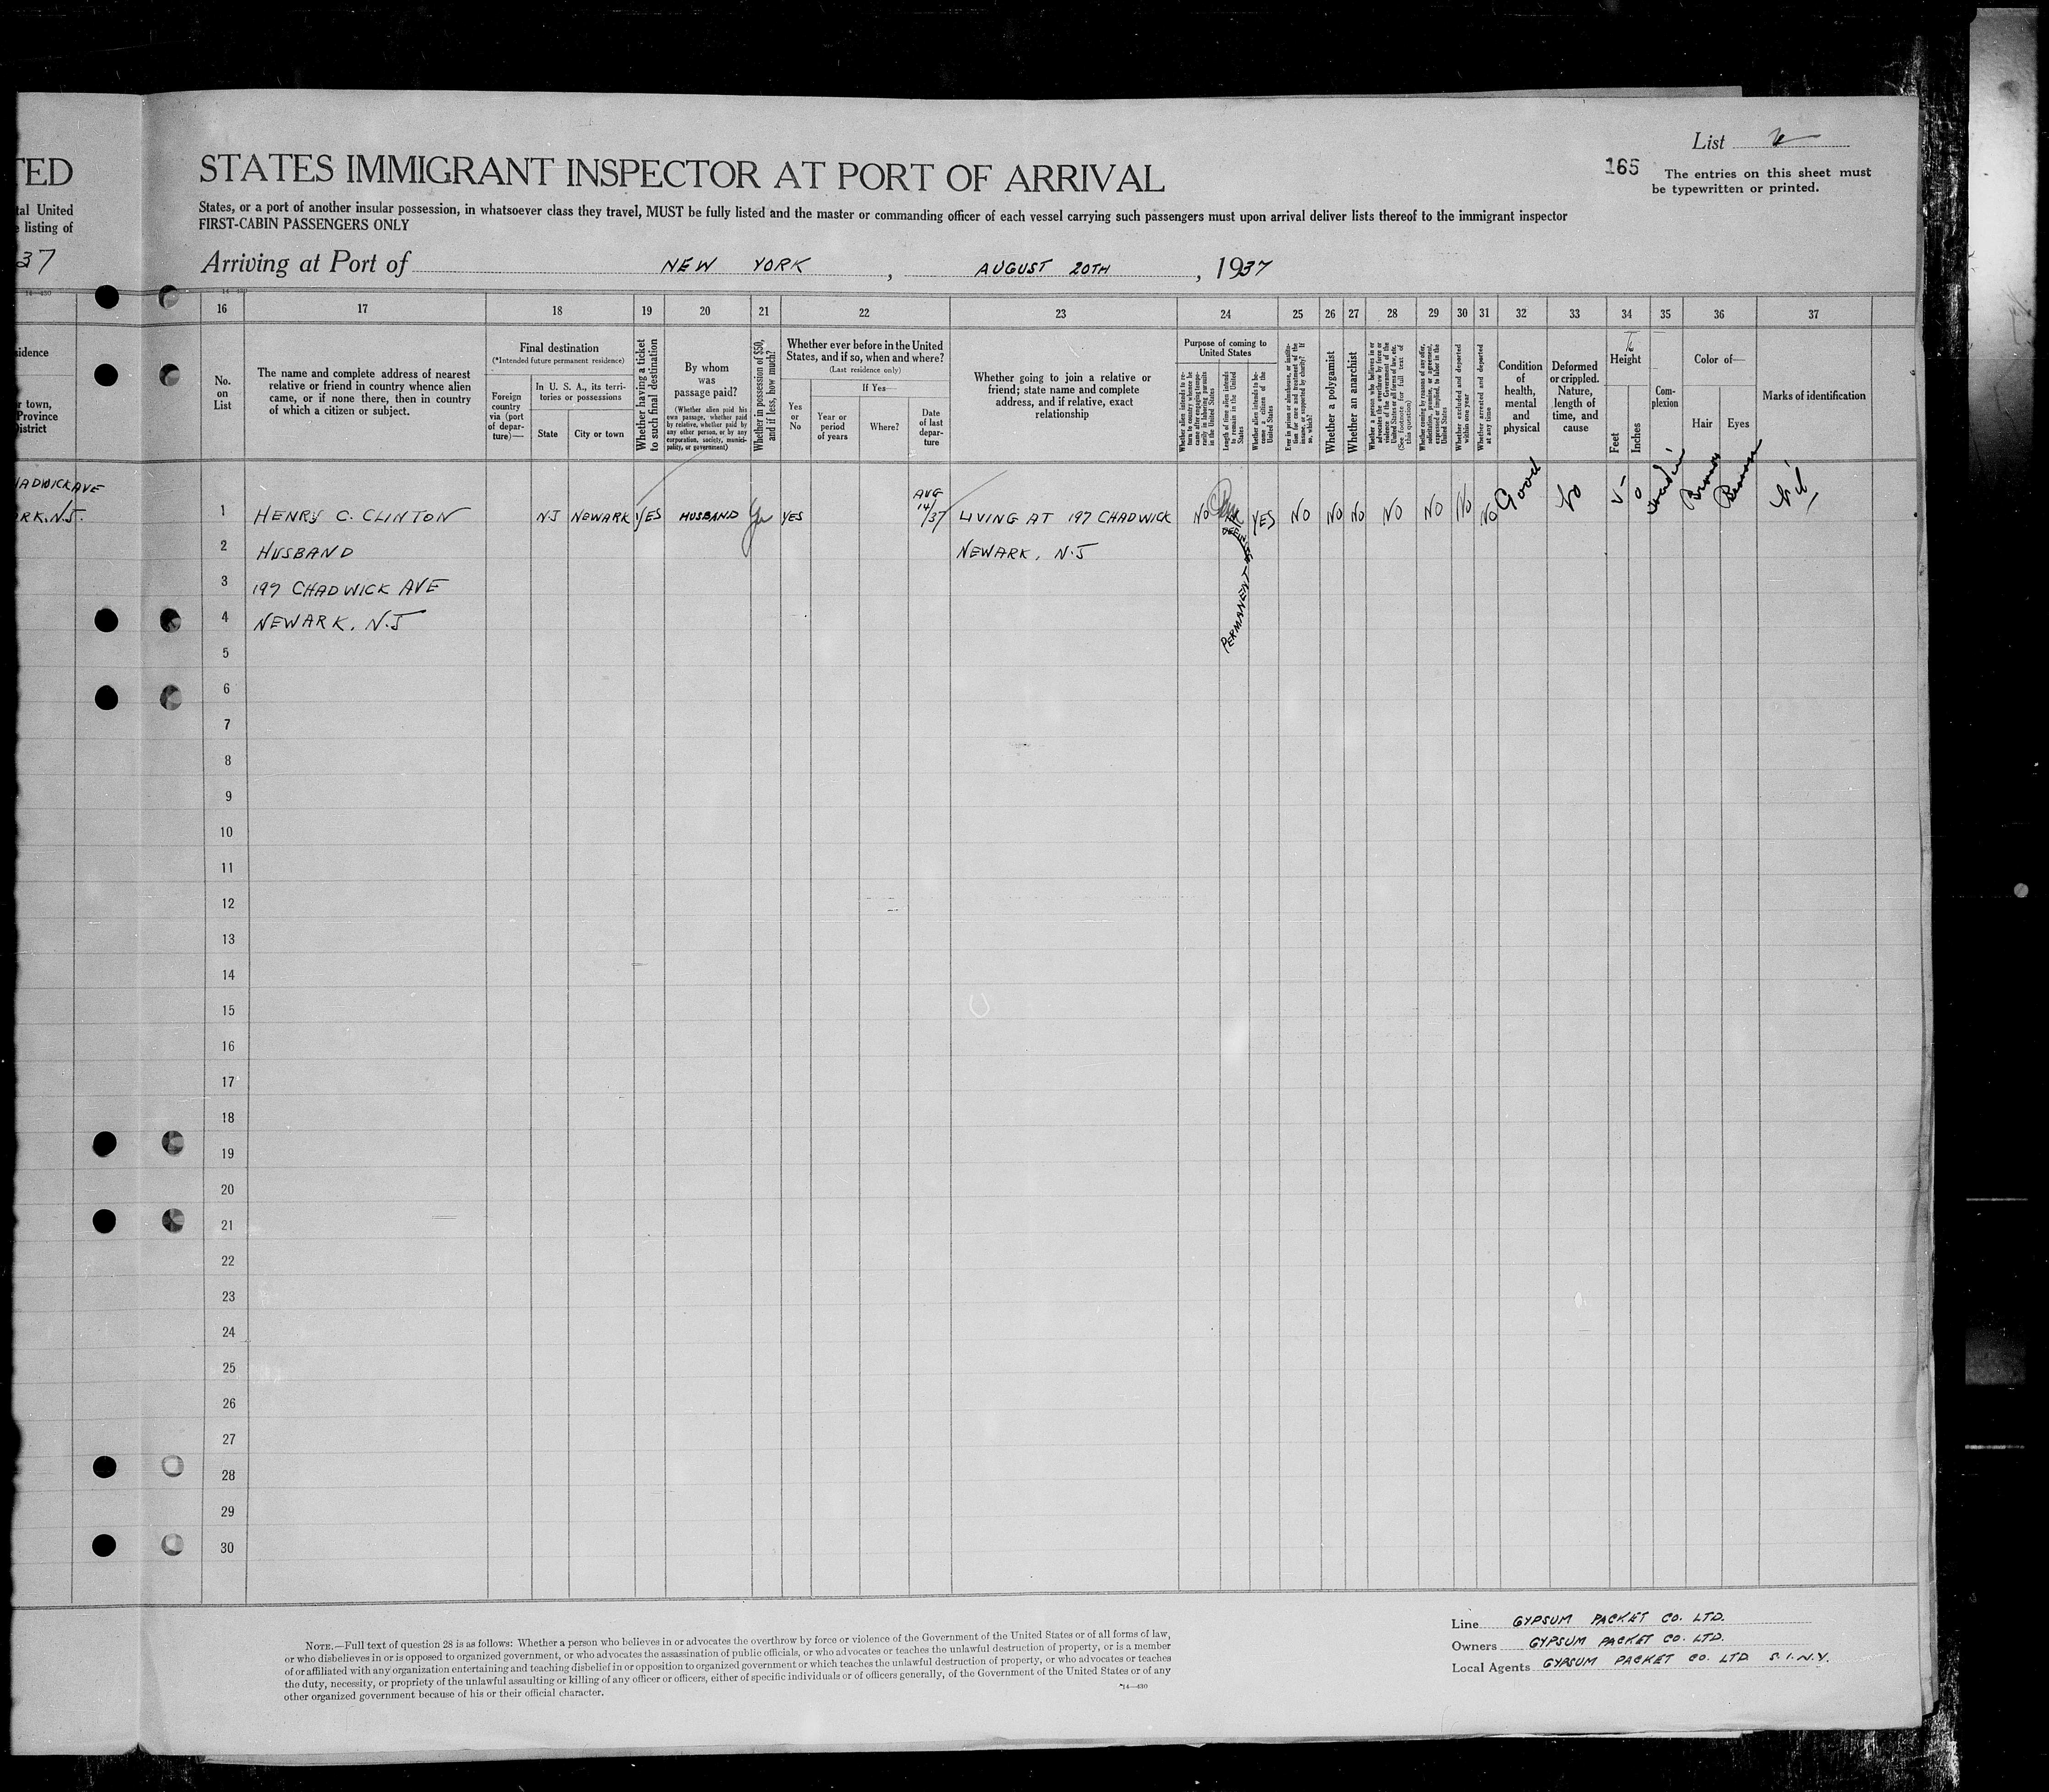 TED
tal United
listing of
37
14—430
sidence
r town,
Province
District
HADWICK AVE
ARK. N.J.
List
165
The entries on this sheet must
be typewritten or printed.
STATES IMMIGRANT INSPECTOR AT PORT OF ARRIVAL
States, or a port of another insular possession, in whatsoever class they travel, MUST be fully listed and the master or commanding officer of each vessel carrying such passengers must upon arrival deliver lists thereof to the immigrant inspector
FIRST-CABIN PASSENGERS ONLY
Arriving at Port of NEW YORK, AUGUST 20TH, 1937
16 17 18 19 20 21 22 23 24 25 26 27 28 29 30 31 32 33 34 35 36 37
No. on List
The name and complete address of nearest
relative or friend in country whence alien
came, or if none there, then in country
of which a citizen or subject.
Final destination
(*Intended future permanent residence)
Foreign country via (port of departure)—
In U. S. A., its territories or possessions
State
City or town
Whether having a ticket to such final destination
By whom was passage paid?
(Whether alien paid his own passage, whether paid by relative, whether paid by any other person, or by any corporation, society, municipality, or government)
Whether in possession of $50, and if less, how much?
Whether ever before in the United
States, and if so, when and where?
(Last residence only)
Yes or No
If Yes—
Year or period of years
Where?
Date of last departure
Whether going to join a relative or
friend; state name and complete
address, and if relative, exact
relationship
Purpose of coming to
United States
Whether alien intends to return to country whence he came after engaging temporarily in laboring pursuits in the United States
Length of time alien intends to remain in the United States
Whether alien intends to become a citizen of the United States
Ever in prison or almshouse, or institution for care and treatment of the insane, or supported by charity? If so, which?
Whether a polygamist
Whether an anarchist
Whether a person who believes in or advocates the overthrow by force or violence of the Government of the United States or all forms of law, etc. (See footnote for full text of this question)
Whether coming by reasons of any offer, solicitation, promise, or agreement, expressed or implied, to labor in the United States
Whether excluded and deported within one year
Whether arrested and deported at any time
Condition of health, mental and physical
Deformed or crippled. Nature, length of time, and cause
Height
Feet
Inches
Complexion
Color of—
Hair
Eyes
Marks of identification
1 HENRY C. CLINTON NJ NEWARK YES HUSBAND Yes YES AUG 14/37 LIVING AT 197 CHADWICK NO YES NO NO NO NO NO No NO Good No 5 0 Brown Brown Nil
PERMANENT
2 HUSBAND NEWARK, N.J
3 197 CHADWICK AVE
4 NEWARK, N.J
5
6
7
8
9
10
11
12
13
14
15
16
17
18
19
20
21
22
23
24
25
26
27
28
29
30
NOTE.—Full text of question 28 is as follows: Whether a person who believes in or advocates the overthrow by force or violence of the Government of the United States or of all forms of law,
or who disbelieves in or is opposed to organized government, or who advocates the assassination of public officials, or who advocates or teaches the unlawful destruction of property, or is a member
of or affiliated with any organization entertaining and teaching disbelief in or opposition to organized government or which teaches the unlawful destruction of property, or who advocates or teaches
the duty, necessity, or propriety of the unlawful assaulting or killing of any officer or officers, either of specific individuals or of officers generally, of the Government of the United States or of any
other organized government because of his or their official character.
14—430
Line GYPSUM PACKET CO. LTD.
Owners GYPSUM PACKET CO. LTD.
Local Agents GYPSUM PACKET CO. LTD S.I.N.Y.